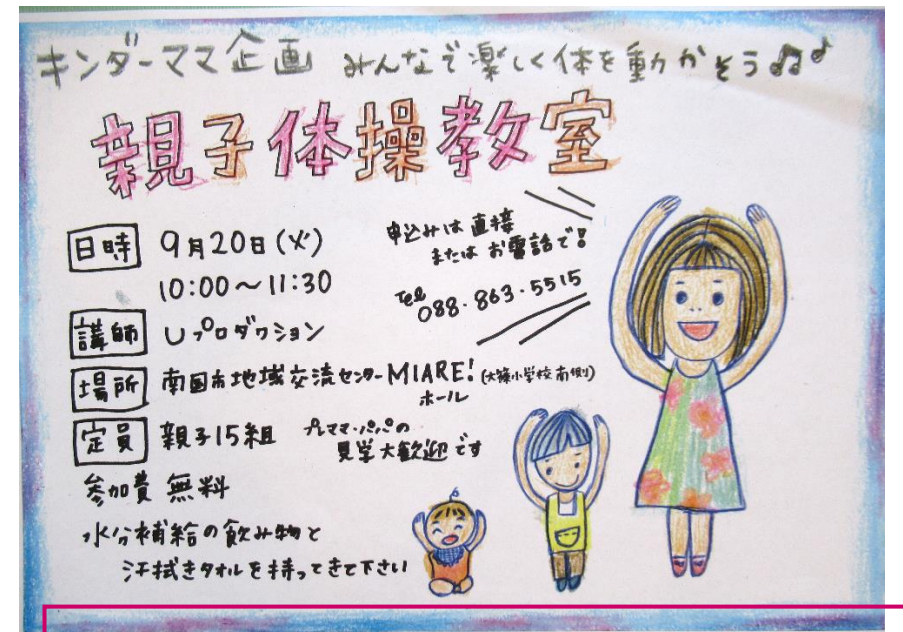 キンダーママ企画 みんなで楽しく体を動かそう♫♪
親子体操教室
日時 9月20日(火)
10:00〜11:30
申込みは直接
またはお電話で!
Tel 088-863-5515
講師 Uプロダクション
場所 南国市地域交流センターMIARE!(大篠小学校南側)
ホール
定員 親子15組 プレママ・パパの
見学大歓迎です
参加費 無料
水分補給の飲み物と
汗拭きタオルを持ってきて下さい